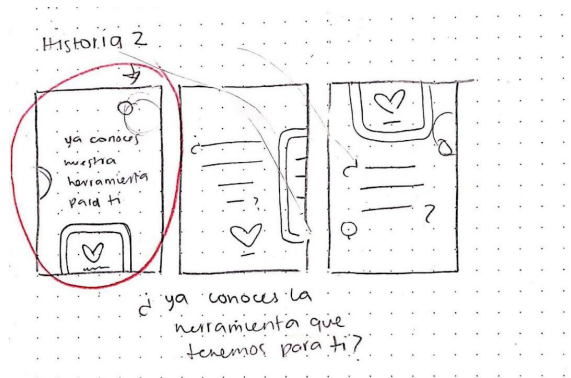 Historia 2
ya conoces
nuestra
herramienta
para ti
¿
?
¿
?
¿ ya conoces la
herramienta que
tenemos para ti?